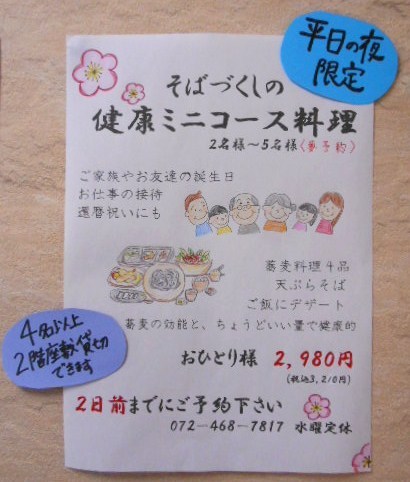 平日の夜
限定
そばづくしの
健康ミニコース料理
2名様～5名様〈要予約〉
ご家族やお友達の誕生日
お仕事の接待
還暦祝いにも
蕎麦料理4品
天ぷらそば
ご飯にデザート
蕎麦の効能と、ちょうどいい量で健康的
4名以上
2階座敷貸切
できます
おひとり様 2,980円
(税込3,210円)
2日前までにご予約下さい
072-468-7817 水曜定休